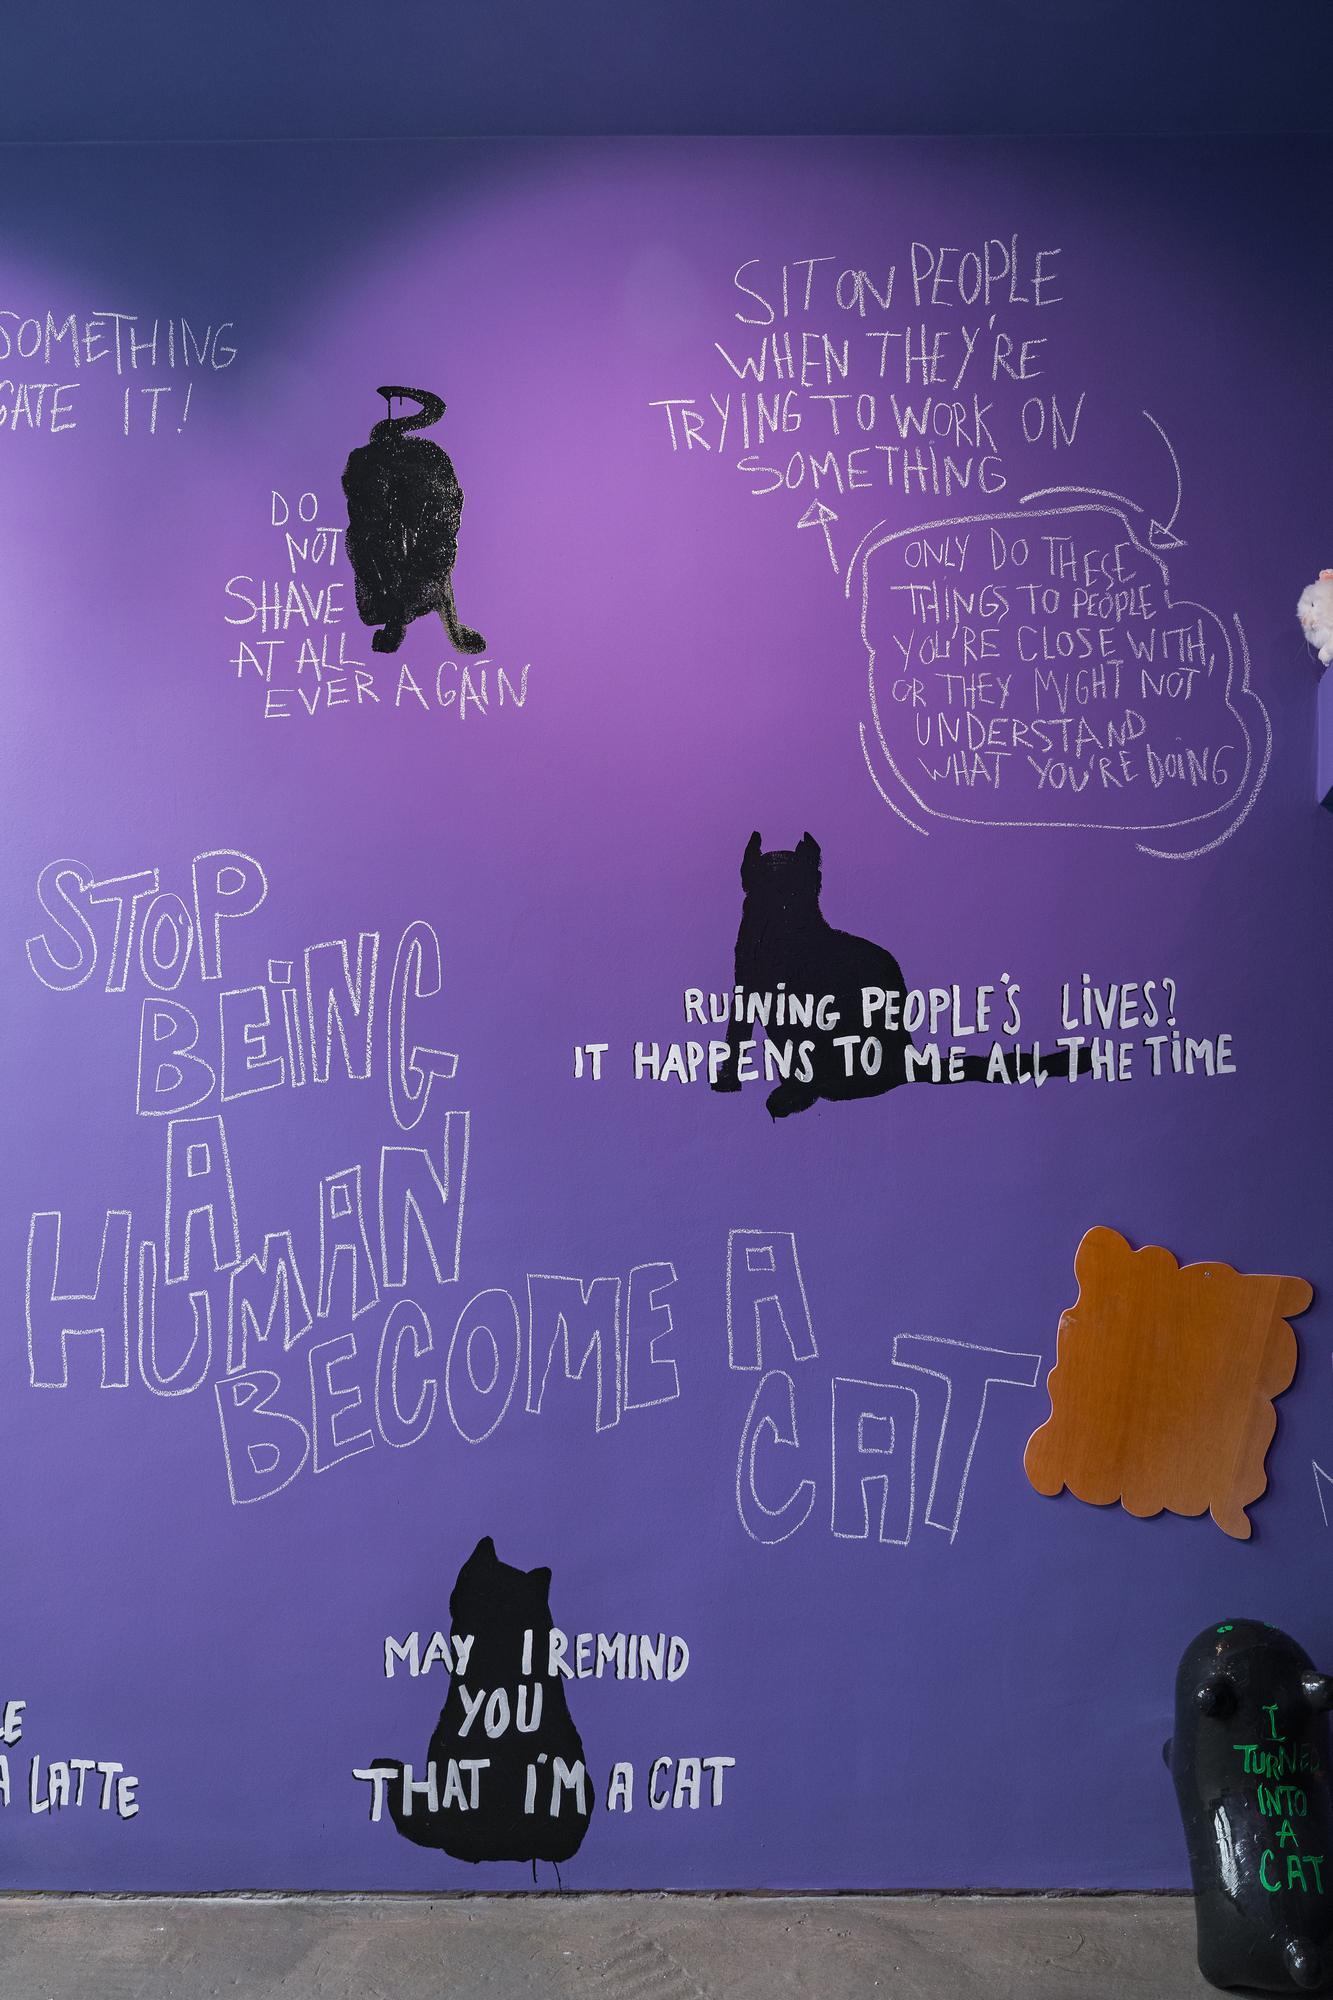 SOMETHING
IT!
SIT ON PEOPLE
WHEN THEY'RE
TRYING TO WORK ON
SOMETHING
ONLY DO THESE
THINGS TO PEOPLE
YOU'RE CLOSE WITH,
OR THEY MIGHT NOT
UNDERSTAND
WHAT YOU'RE DOING
DO
NOT
SHAVE
AT ALL
EVER AGAIN
STOP
BEING
A
HUMAN
BECOME A
CAT
RUINING PEOPLE'S LIVES?
IT HAPPENS TO ME ALL THE TIME
MAY I REMIND
YOU
THAT I'M A CAT
A LATTE
I
TURNED
INTO
A
CAT